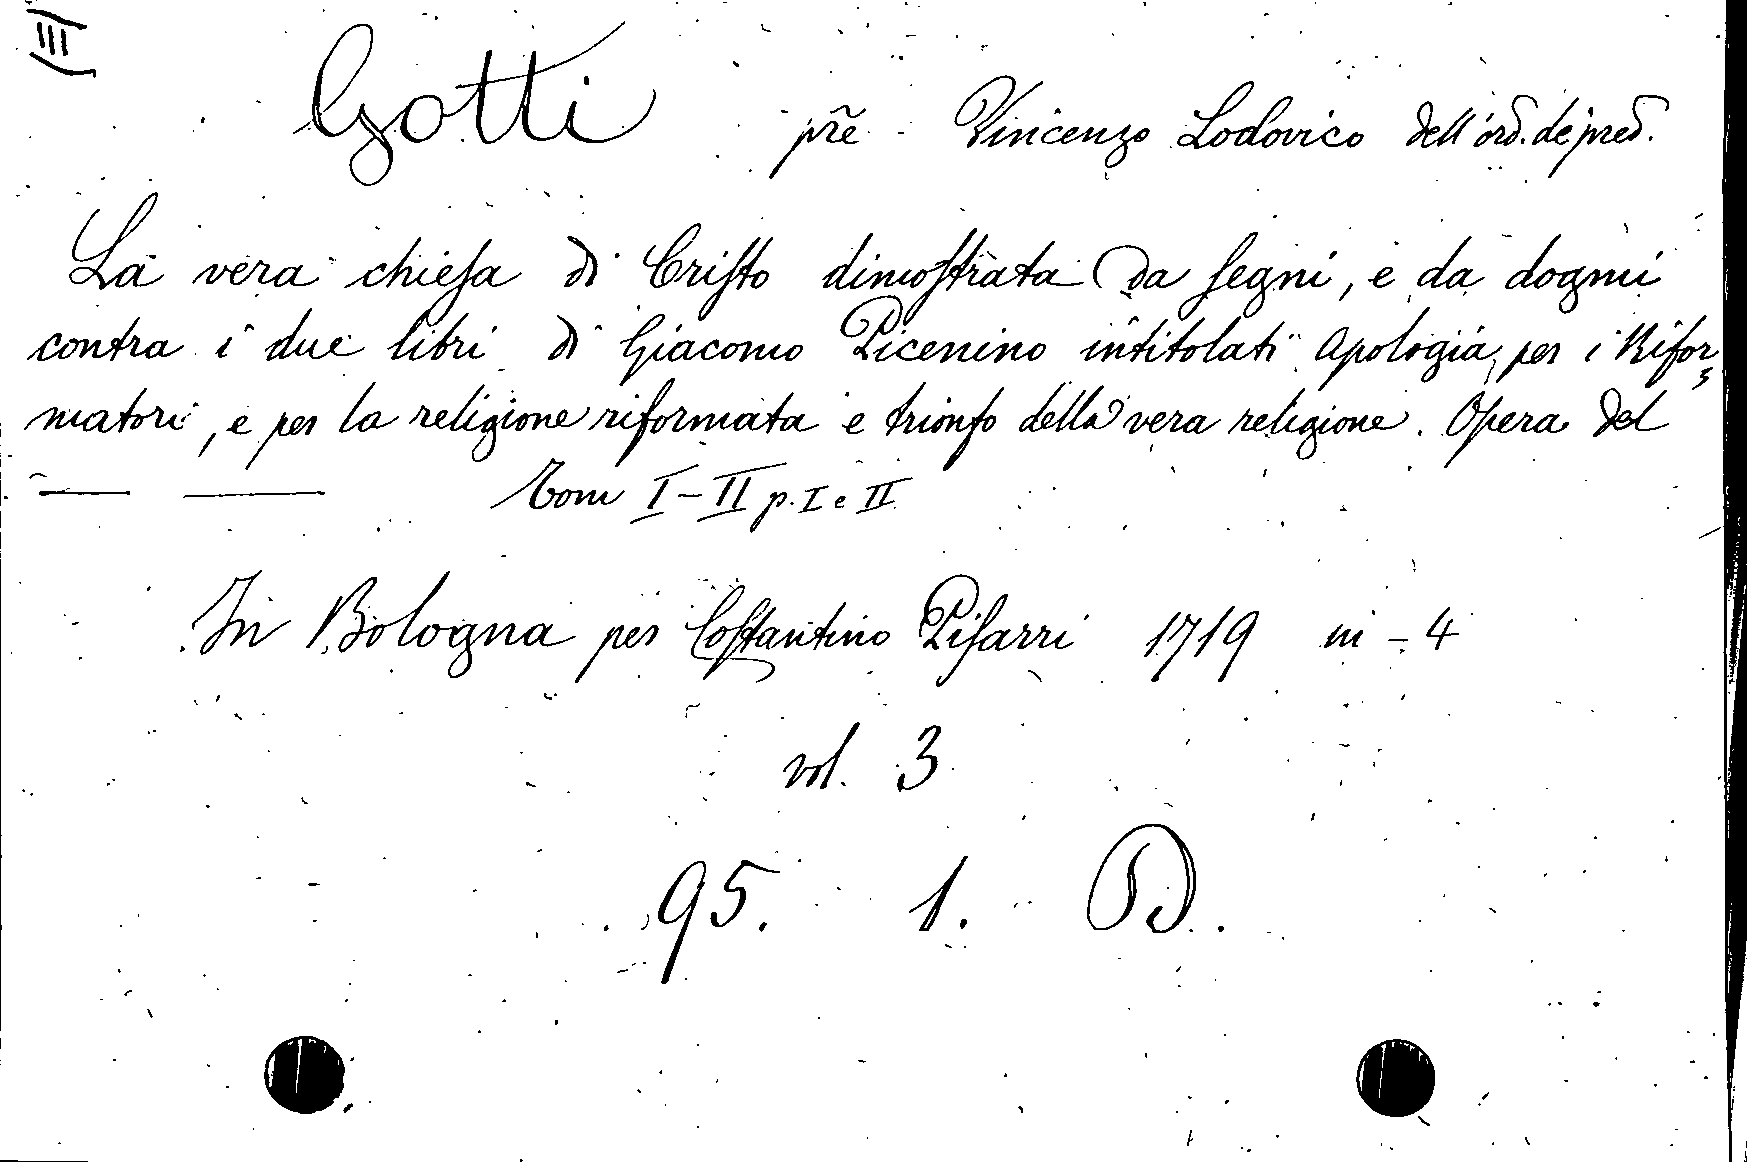 (III)
Gotti pr̃e Vincenzo Lodovico dell'ord. de' pred.
La vera chieſa di Criſto dimoſtrata da ſegni, e da dogmi
contra i due libri di Giacomo Picenino intitolati Apologia per i Rifor=
matori, e per la religione riformata e trionfo della vera religione. Opera del
— — Tom I-II p. I e II
In Bologna per Coſtantino Piſarri 1719 in-4
vol. 3
95. 1. D.